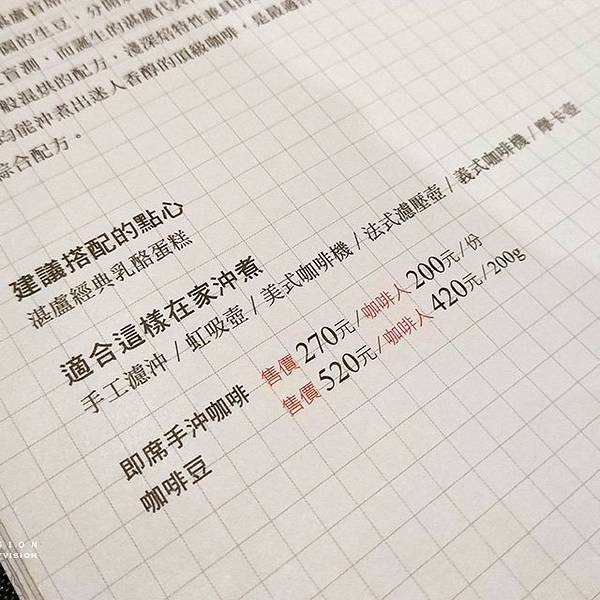 圍的生豆，分開烘
盲測，而誕生的湛盧代表
般混烘的配方，淺深焙特性兼具的
均能沖煮出迷人香醇的頂級咖啡，是最適合
綜合配方。
建議搭配的點心
湛盧經典乳酪蛋糕
適合這樣在家沖煮
手工濾沖 / 虹吸壺 / 美式咖啡機 / 法式濾壓壺 / 義式咖啡機 / 摩卡壺
即席手沖咖啡 售價 270元 / 咖啡人 200元 / 份
咖啡豆 售價 520元 / 咖啡人 420元 / 200g